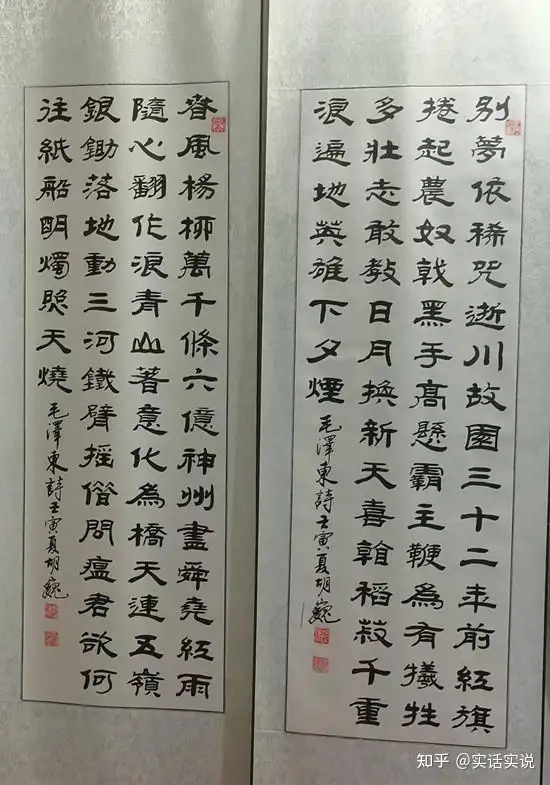 别夢依稀咒逝川故園三十二年前紅旗
捲起農奴戟黑手高懸霸主鞭為有犧牲
多壯志敢教日月換新天喜看稻菽千重
浪遍地英雄下夕煙
毛澤東詩壬寅夏胡巍
春風楊柳萬千條六億神州盡舜堯紅雨
隨心翻作浪青山著意化為橋天連五嶺
銀鋤落地動三河鐵臂搖借問瘟君欲何
往紙船明燭照天燒
毛澤東詩壬寅夏胡巍
知乎 @实话实说